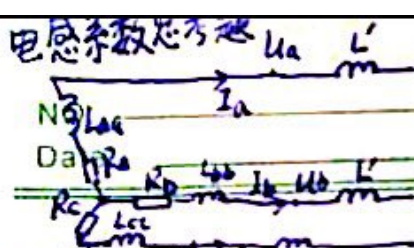 电感系数
Ua L'
Ia
No
Laa
Da Ra
Rb Lbb Ib Ub L'
Rc
Lcc